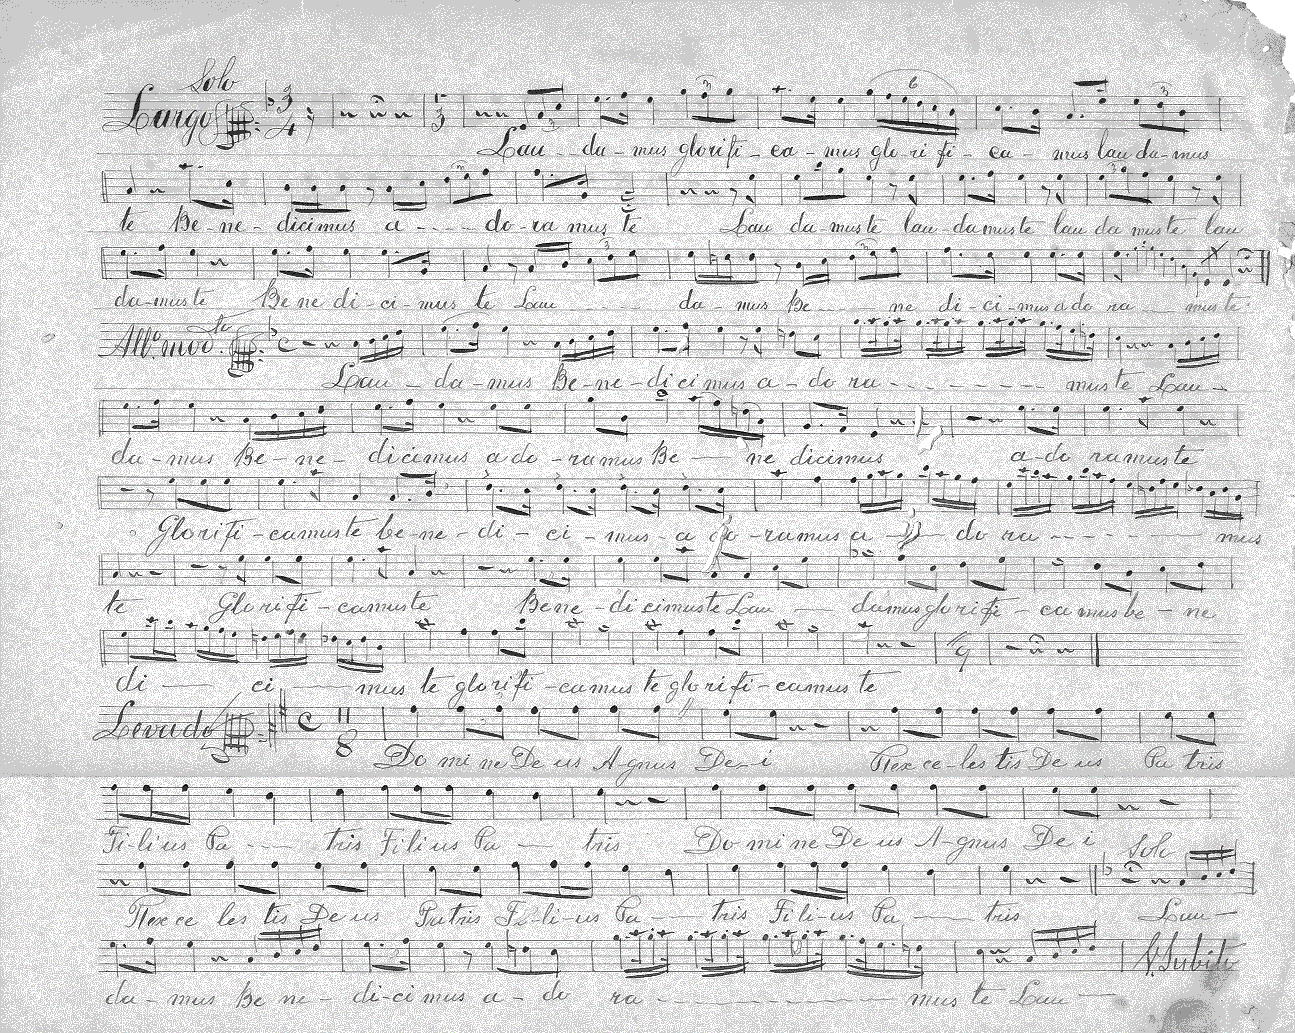 Solo
Largo 3/4 13 3 3 6 3
Lau - da - mus glorifi - ca - mus glo - ri fi - ca - mus lau da - mus
te Be - ne - dicimus a - - - - do - ra mus te Lau da - muste lau - damuste lau da muste lau
da - muste Bene di - ci - mus te Lau da - mus Be ne di - ci - mus ado ra muste
All.º mod.to C
Lau - da - mus Be - ne - di cimus a - do ra - - - - - - - - muste Lau -
da - mus Be - ne - dicimus ado - ramus Be - ne dicimus a - do ramuste
Glorifi - camuste be - ne - di - ci - mus - a do - ramus a - do ra - - - - - - mus
te Glorifi - camuste Bene - di cimuste Lau - damusglorifi - camusbe - ne
9
di - ci - mus te glorifi - camus te glorifi - camus te
Levado C 11 8
Do mi ne De us A - gnus De - i Rex ce - les tis De us Pa tris
Fi - li us Pa - - - tris Filius Pa - tris Do mi ne De us A - gnus De i
Solo
Rex ce les tis De us Patris Fi - li - us Pa - tris Fi li - us Pa - tris Lau -
V. Subito
da - mus Be ne - di - ci mus a - do ra - - - - - - - - mus te Lau -